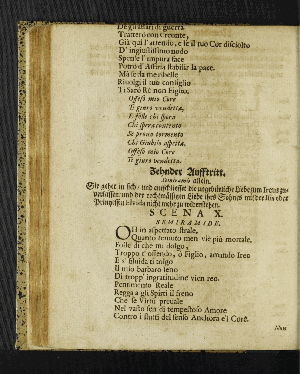 De gl'affari di guerra
Tratterò con Creonte,
Già qui l'attendo, e se il tuo Cor disciolto
D'ingiustissimo nodo
Spense l'impura face
Potrò d'Assiria stabilir la pace.
Mà se da me ribelle
Rivolgi il tuo consiglio
Ti Sarò Rè non Figlio.
Offeso mio Core
Ti giuro vendetta.
E folle chi spera
Chi spera contento
Se prova tormento
Che Giubilo aspetta.
Offeso mio Core
Ti giuro vendetta.
Zehender Aufftritt.
Semiramis allein.
Sie gehet in sich / und entschliesset die ungebührliche Liebe zum Ireus zu
verlassen / und der rechtmässigen Liebe ihres Sohnes mit der
Prinzessin nicht mehr zu widerstehen.
SCENA X.
SEMIRAMIDE.
OH in aspettato strale,
Quanto temuto men viè più mortale.
Folle di che mi dolgo,
Troppo t'offendo, o Figlio, amando Ireo
E s' Isuida ti tolgo
Il mio barbaro seno
Di tropp' ingratitudine vien reo.
Pentimento Reale
Regga a gli Spirti il freno
Che se Virtù prevale
Nel vasto sen di tempestoso Amore
Contro i flutti del senso Anchora è'l Core.